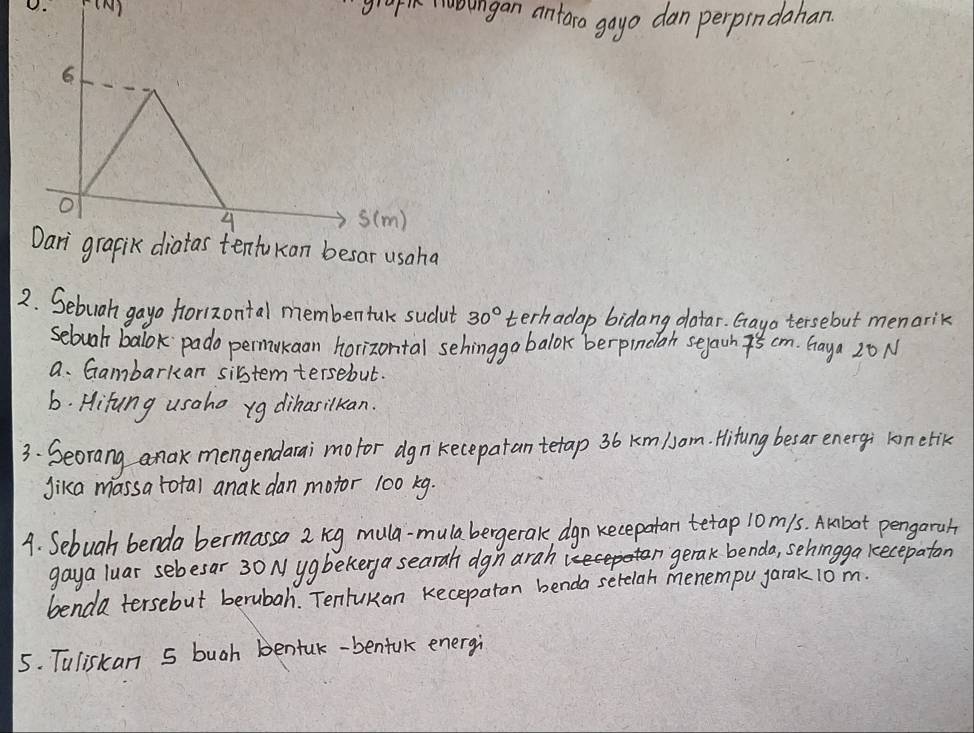 (N)
grafik hubungan antara gaya dan perpindahan.
6
0
4
S(m)
Dari grafik diatas tentukan besar usaha
2. Sebuah gaya horizontal membentuk sudut 30° terhadap bidang datar. Gaya tersebut menarik
sebuah balok pada permukaan horizontal sehingga balok berpindah sejauh 75 cm. Gaya 20 N
a. Gambarkan sistem tersebut.
b. Hitung usaha yg dihasilkan.
3. Seorang anak mengendarai motor dgn kecepatan tetap 36 km/jam. Hitung besar energi kinetik
jika massa total anak dan motor 100 kg.
4. Sebuah benda bermassa 2 kg mula-mula bergerak dgn kecepatan tetap 10 m/s. Akibat pengaruh
gaya luar sebesar 30 N yg bekerja searah dgn arah kecepatan gerak benda, sehingga kecepatan
benda tersebut berubah. Tentukan kecepatan benda setelah menempu jarak 10 m.
5. Tuliskan 5 buah bentuk-bentuk energi